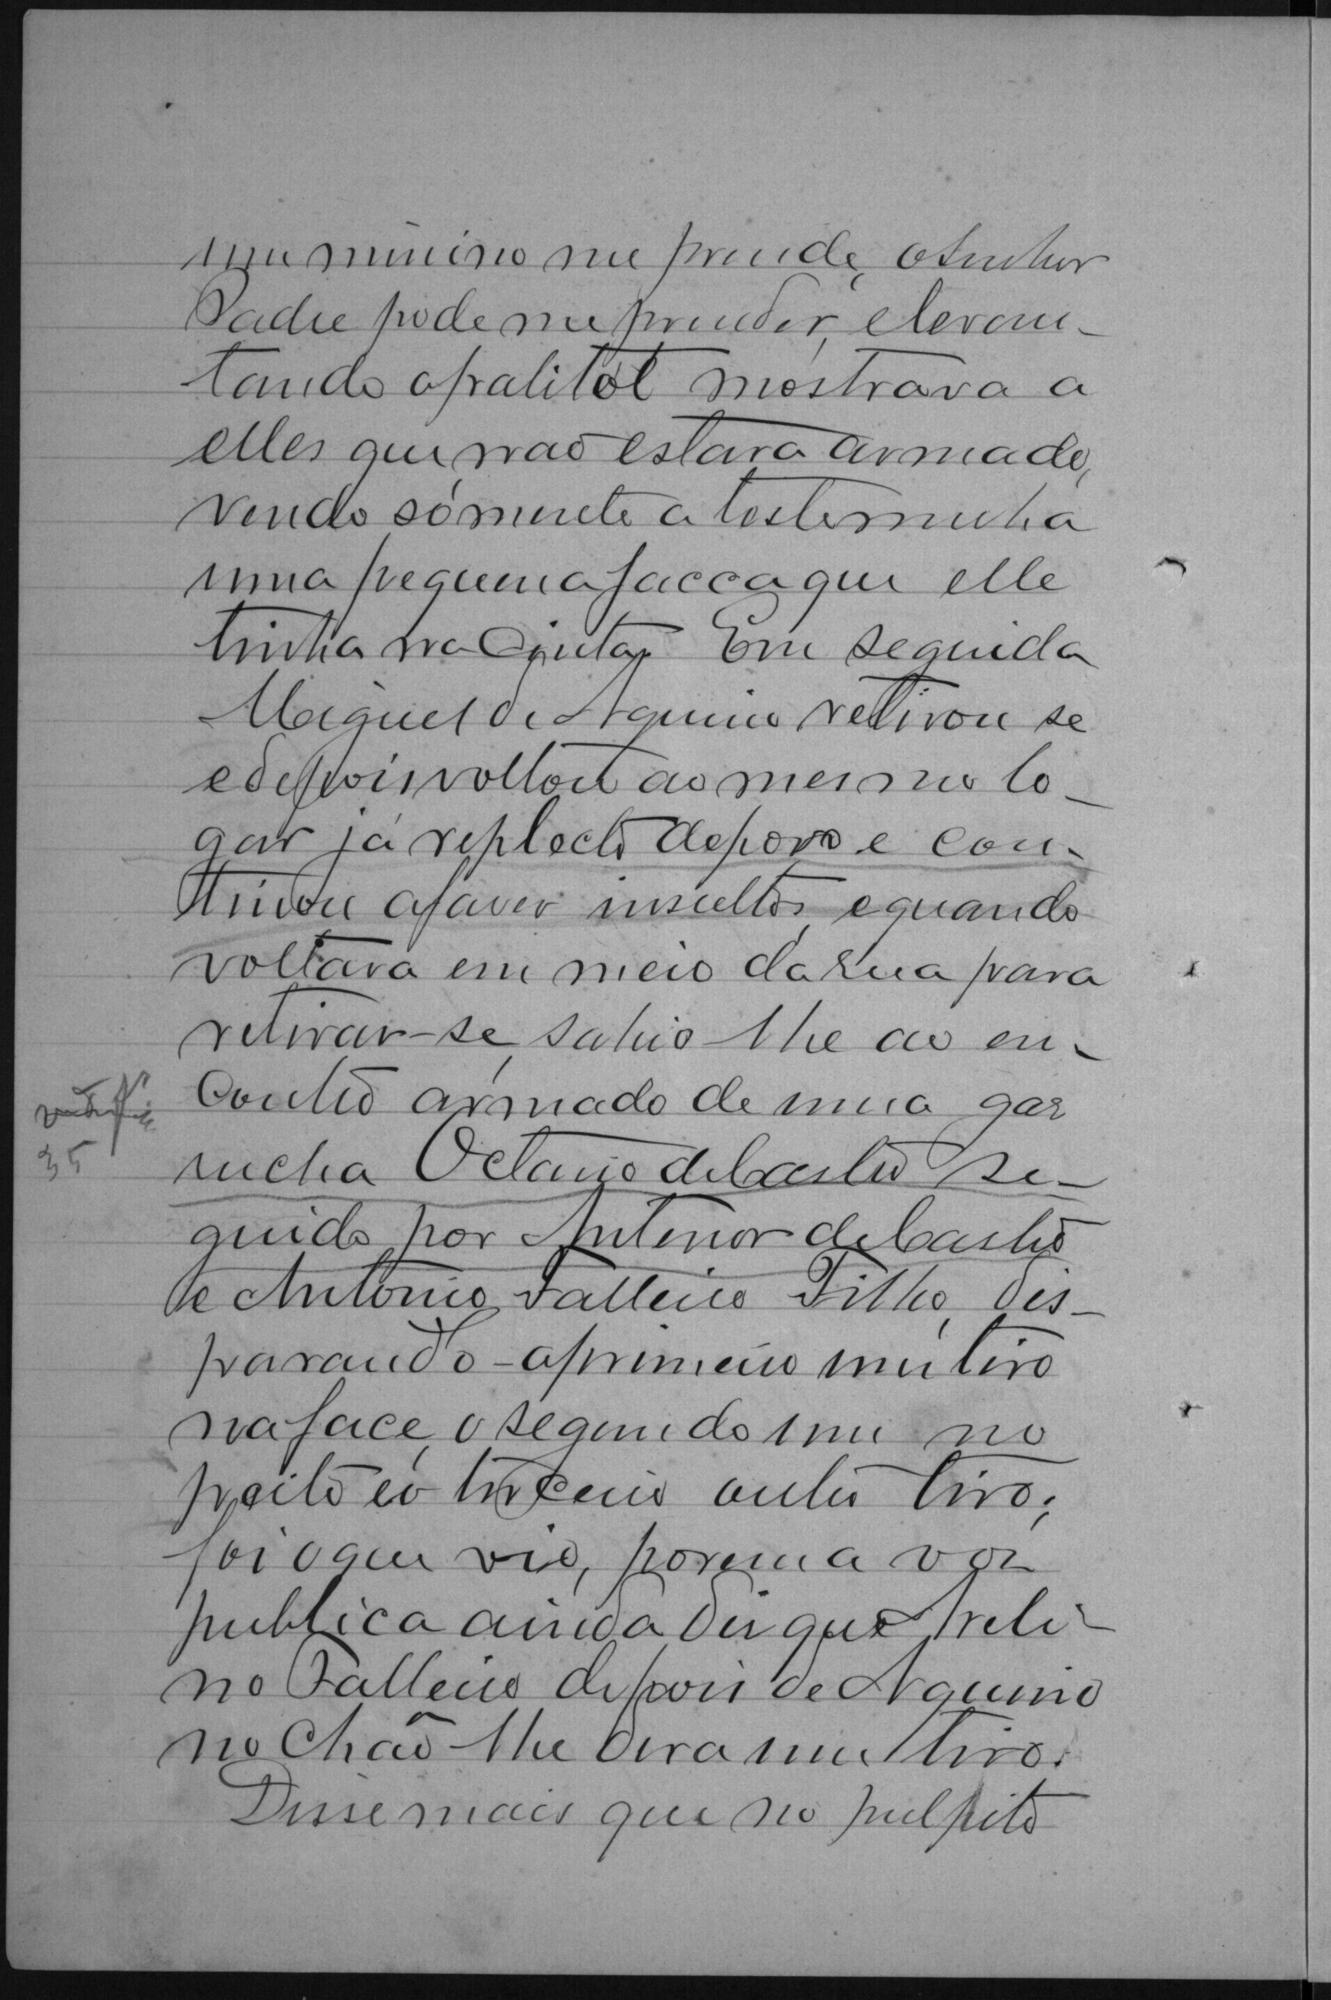 um minino me prende, o senhor
Padre pode me prender, e levan-
tando o palitot mostrava a
elles que não estava armado,
vendo sómente a testemunha
uma pequena facca que elle
tinha na Cinta. Em seguida
Miguel de Aquino retirou se
e depois voltou ao mesmo lo-
gar já replecto de povo e con-
tinuou a faser insultos, e quando
voltava em meio da rua para
retirar-se, sahio-lhe ao en-
contro armado de uma gar
rucha Octavio de Castro se-
guido por Antenor de Castro
e Antonio Falleiro Filho, dis-
parando-o primeiro um tiro
na face, o segundo um no
peito e o terceiro outro tiro;
foi o que vio, porem a voz
publica ainda diz que Aveli-
no Falleiro depois de Aquino
no Chão lhe dera um tiro.
Disse mais que no pulpito
35